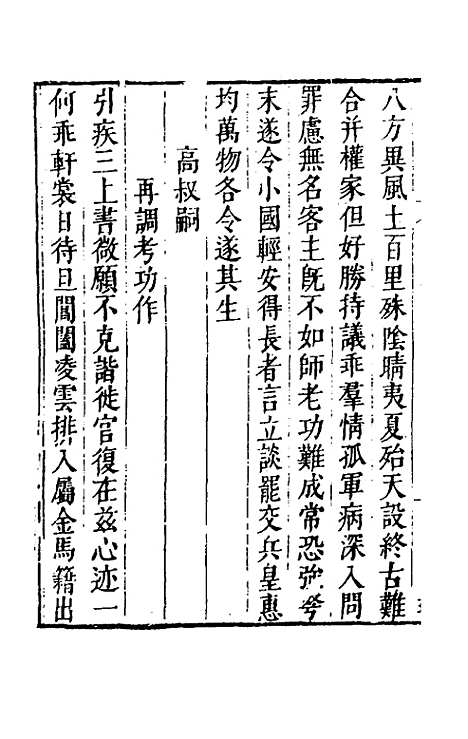 八方異風土百里殊陰晴夷夏殆天設終古難
合并權家但好勝持議乖羣情孤軍病深入問
罪慮無名客主旣不如師老功難成常恐強弩
末遂令小國輕安得長者言立談罷交兵皇惠
均萬物各令遂其生
高叔嗣
再調考功作
引疾三上書微願不克諧徙官復在兹心迹一
何乖軒裳日待旦閶闔凌雲排入屬金馬籍出